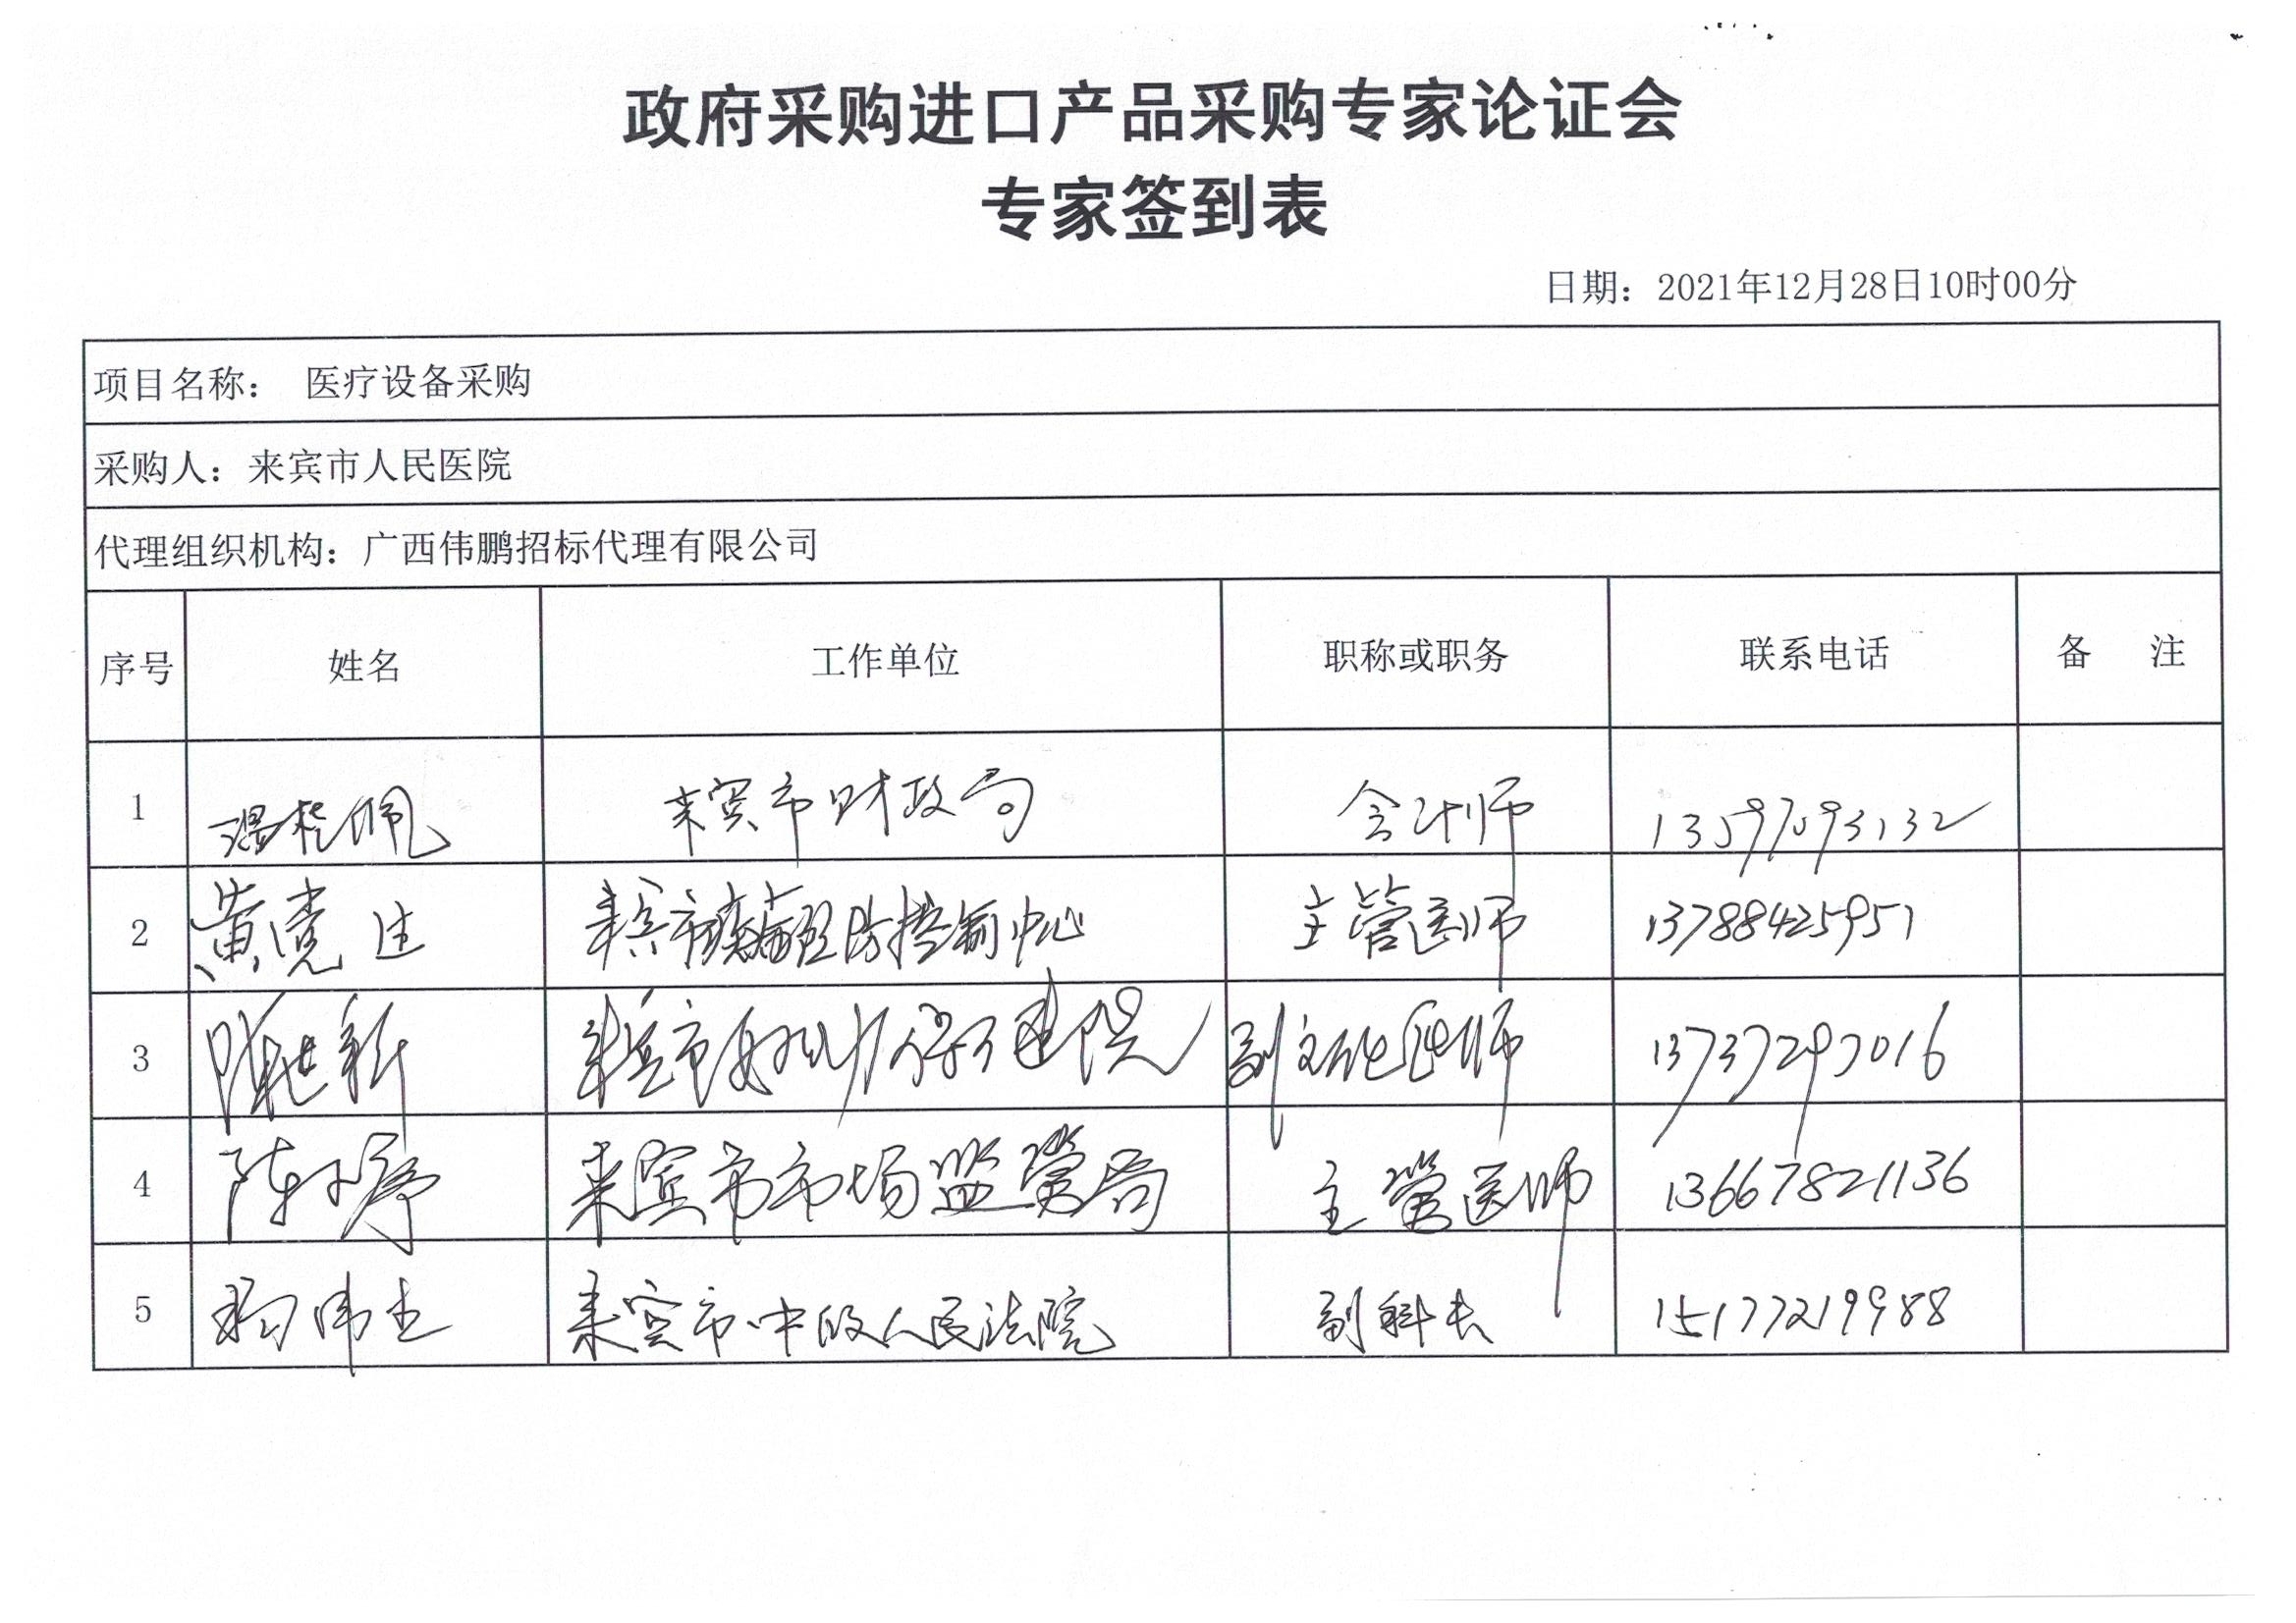 政府采购进口产品采购专家论证会
专家签到表
日期：2021年12月28日10时00分
项目名称： 医疗设备采购
采购人：来宾市人民医院
代理组织机构：广西伟鹏招标代理有限公司
序号 姓名 工作单位 职称或职务 联系电话 备 注
1 来宾市财政局 会计师 13597093132
2 黄 来宾市疾病预防控制中心 主管医师 13788425951
3 来宾市妇幼保健院 副主任医师 13737297016
4 陈 来宾市市场监管局 主管医师 13667821136
5 来宾市中级人民法院 副科长 15177219988